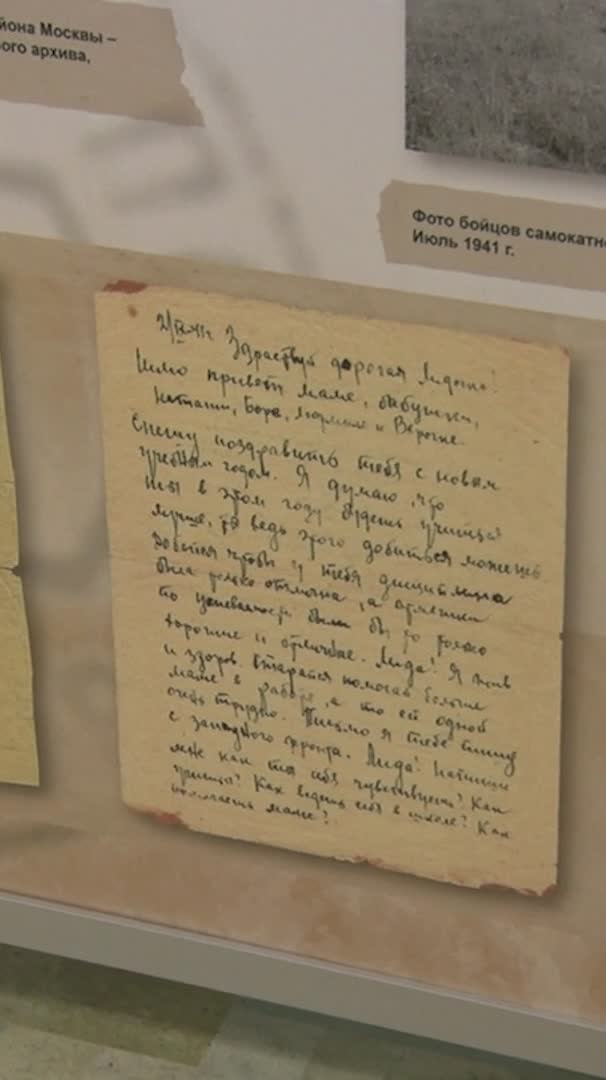 йона Москвы –
ого архива,
Фото бойцов самокатн
Июль 1941 г.
Здравствуй дорогая Лидочка!
Шлю привет маме, бабушке,
Наташи, Боре, Людмиле и Верочке.
Спешу поздравить тебя с новым
учебным годом. Я думаю, что
ты в этом году будешь учиться
лучше, ведь этого добиться можешь
добейся чтобы у тебя дисциплина
была только отлична, а отметки
по успеваемости были бы только
хорошие и отличные. Лида! Я жив
и здоров. Старайся помогай больше
маме в работе, а то ей одной
очень трудно. Письмо я тебе пишу
с западного фронта. Лида! Напиши
мне как ты себя чувствуешь? Как
учишься? Как ведешь себя в школе? Как
помогаешь маме?